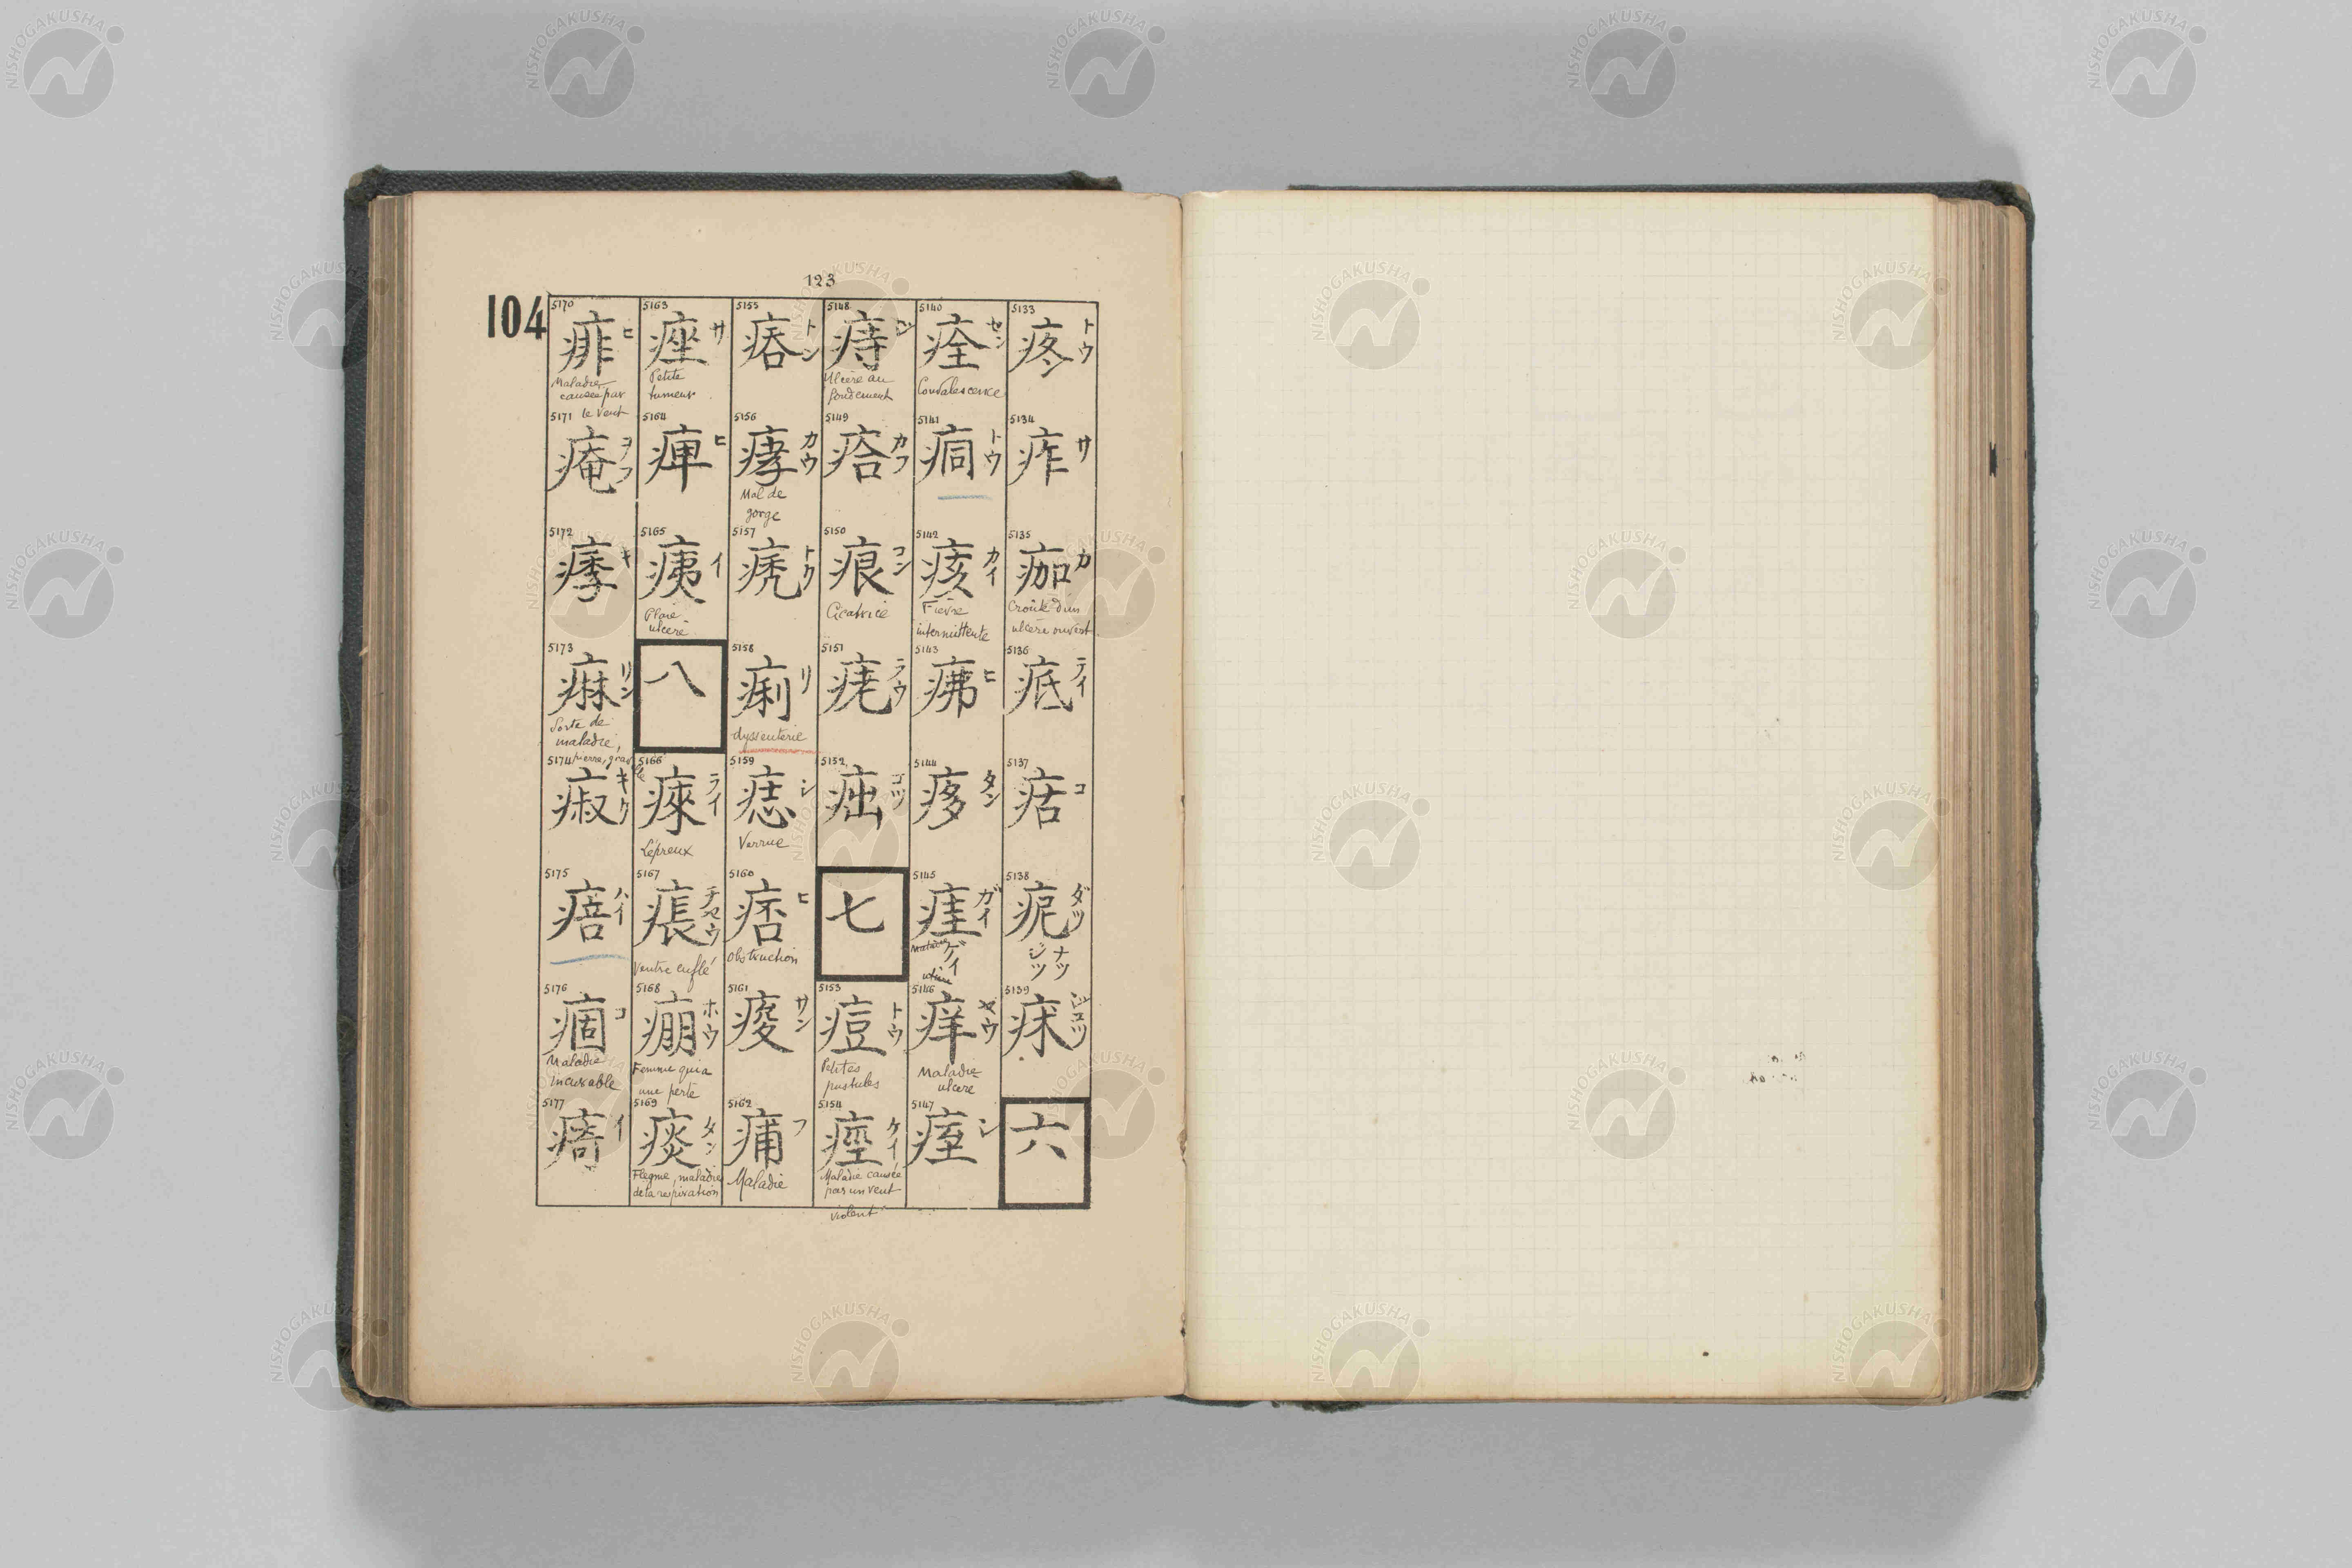 123
104
5133
疼
トウ
5134
痄
サ
5135
痂
カ
Croûte d'un
ulcère ouvert
5136
疷
テイ
5137
㾇
コ
5138
痆
ダツ
ナツ
ジツ
5139
㾁
ジュツ
六
5140
痊
セン
Convalescence
5141
痌
トウ
5142
痎
カイ
Fièvre
intermittente
5143
疿
ヒ
5144
痑
タン
5145
㾏
ガイ
ゲイ
5146
痒
ヤウ
Maladie
ulcère
5147
痓
シ
5148
痔
ジ
Ulcère au
fondement
5149
㾑
カフ
5150
痕
コン
Cicatrice
5151
㾂
ラウ
5152
七
5153
痘
トウ
Petites
pustules
5154
痙
ケイ
Maladie causée
par un vent
violent
5155
トン
5156
痚
カウ
Mal de
gorge
5157
痜
トク
5158
痢
リ
dyssenterie
5159
痣
シ
Verrue
5160
痞
ヒ
Obstruction
5161
痠
サン
5162
痡
フ
Maladie
5163
痤
サ
Petite
tumeur
5164
ヒ
5165
痍
イ
Plaie
ulcère
八
5166
ライ
Lépreux
5167
痮
チャウ
Ventre enflé
5168
痭
ホウ
Femme qui a
une perte
5169
痰
タン
Flegme, maladie
de la respiration
5170
痱
ヒ
Maladie
causée par
le vent
5171
痷
ヲフ
5172
痵
キ
5173
痳
リン
Sorte de
maladie,
pierre,
5174
キク
5175
㾦
ハイ
5176
痼
コ
Maladie
incurable
5177
痏
イ
NISHOGAKUSHA